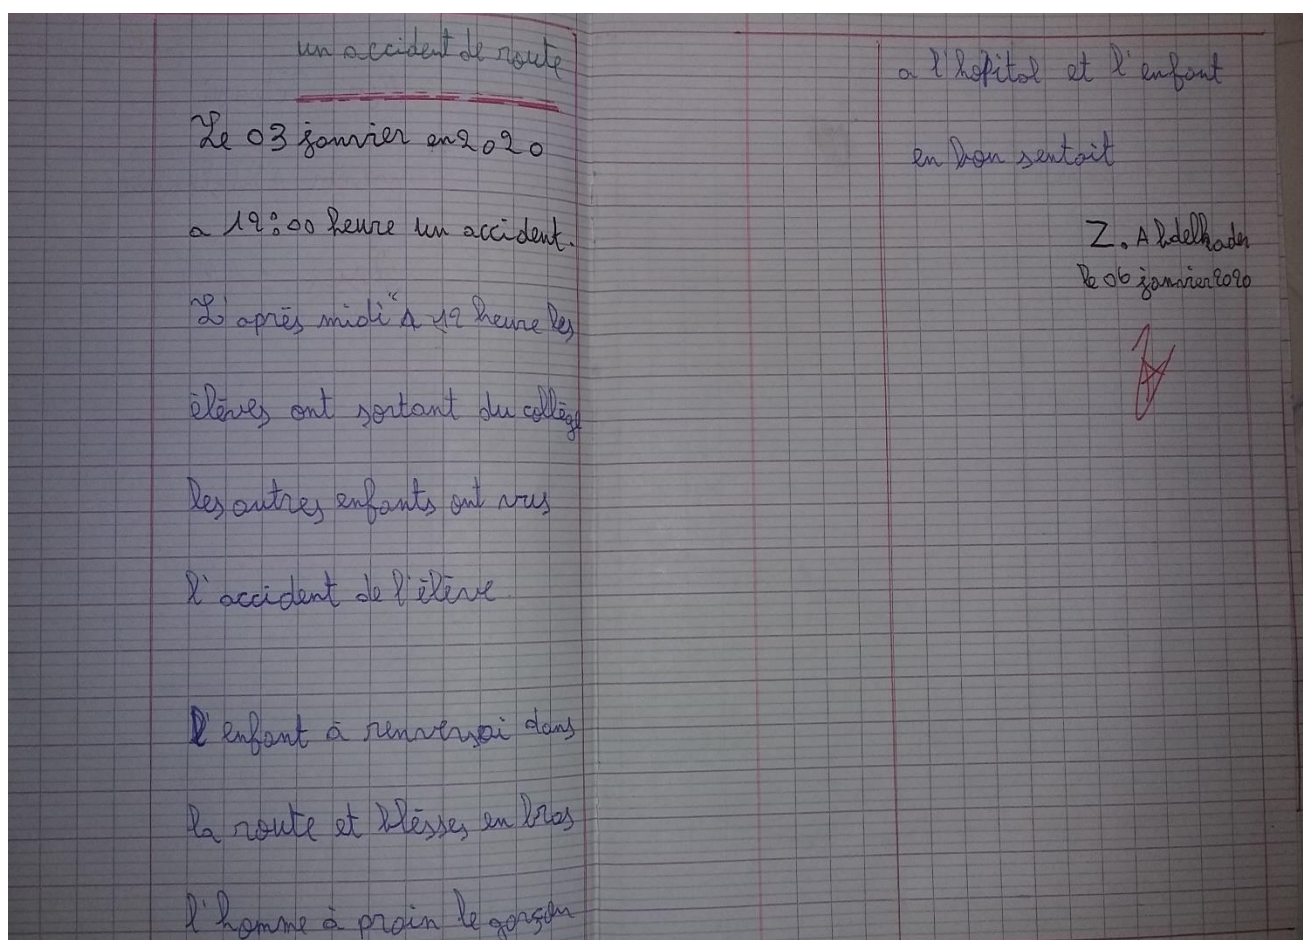 un accident de route
Le 03 janvier en 2020
a 12:00 heure un accident.
L'après midi "A 12 heure les
élèves ont sortant du collège
les autres enfants ont vus
l'accident de l'élève
l'enfant à renversai dans
la route et blèsses en bras
l'homme à proin le garçon
a l'hopital et l'enfant
en bon sentait
Z. Abdelkader
le 06 janvier 2020